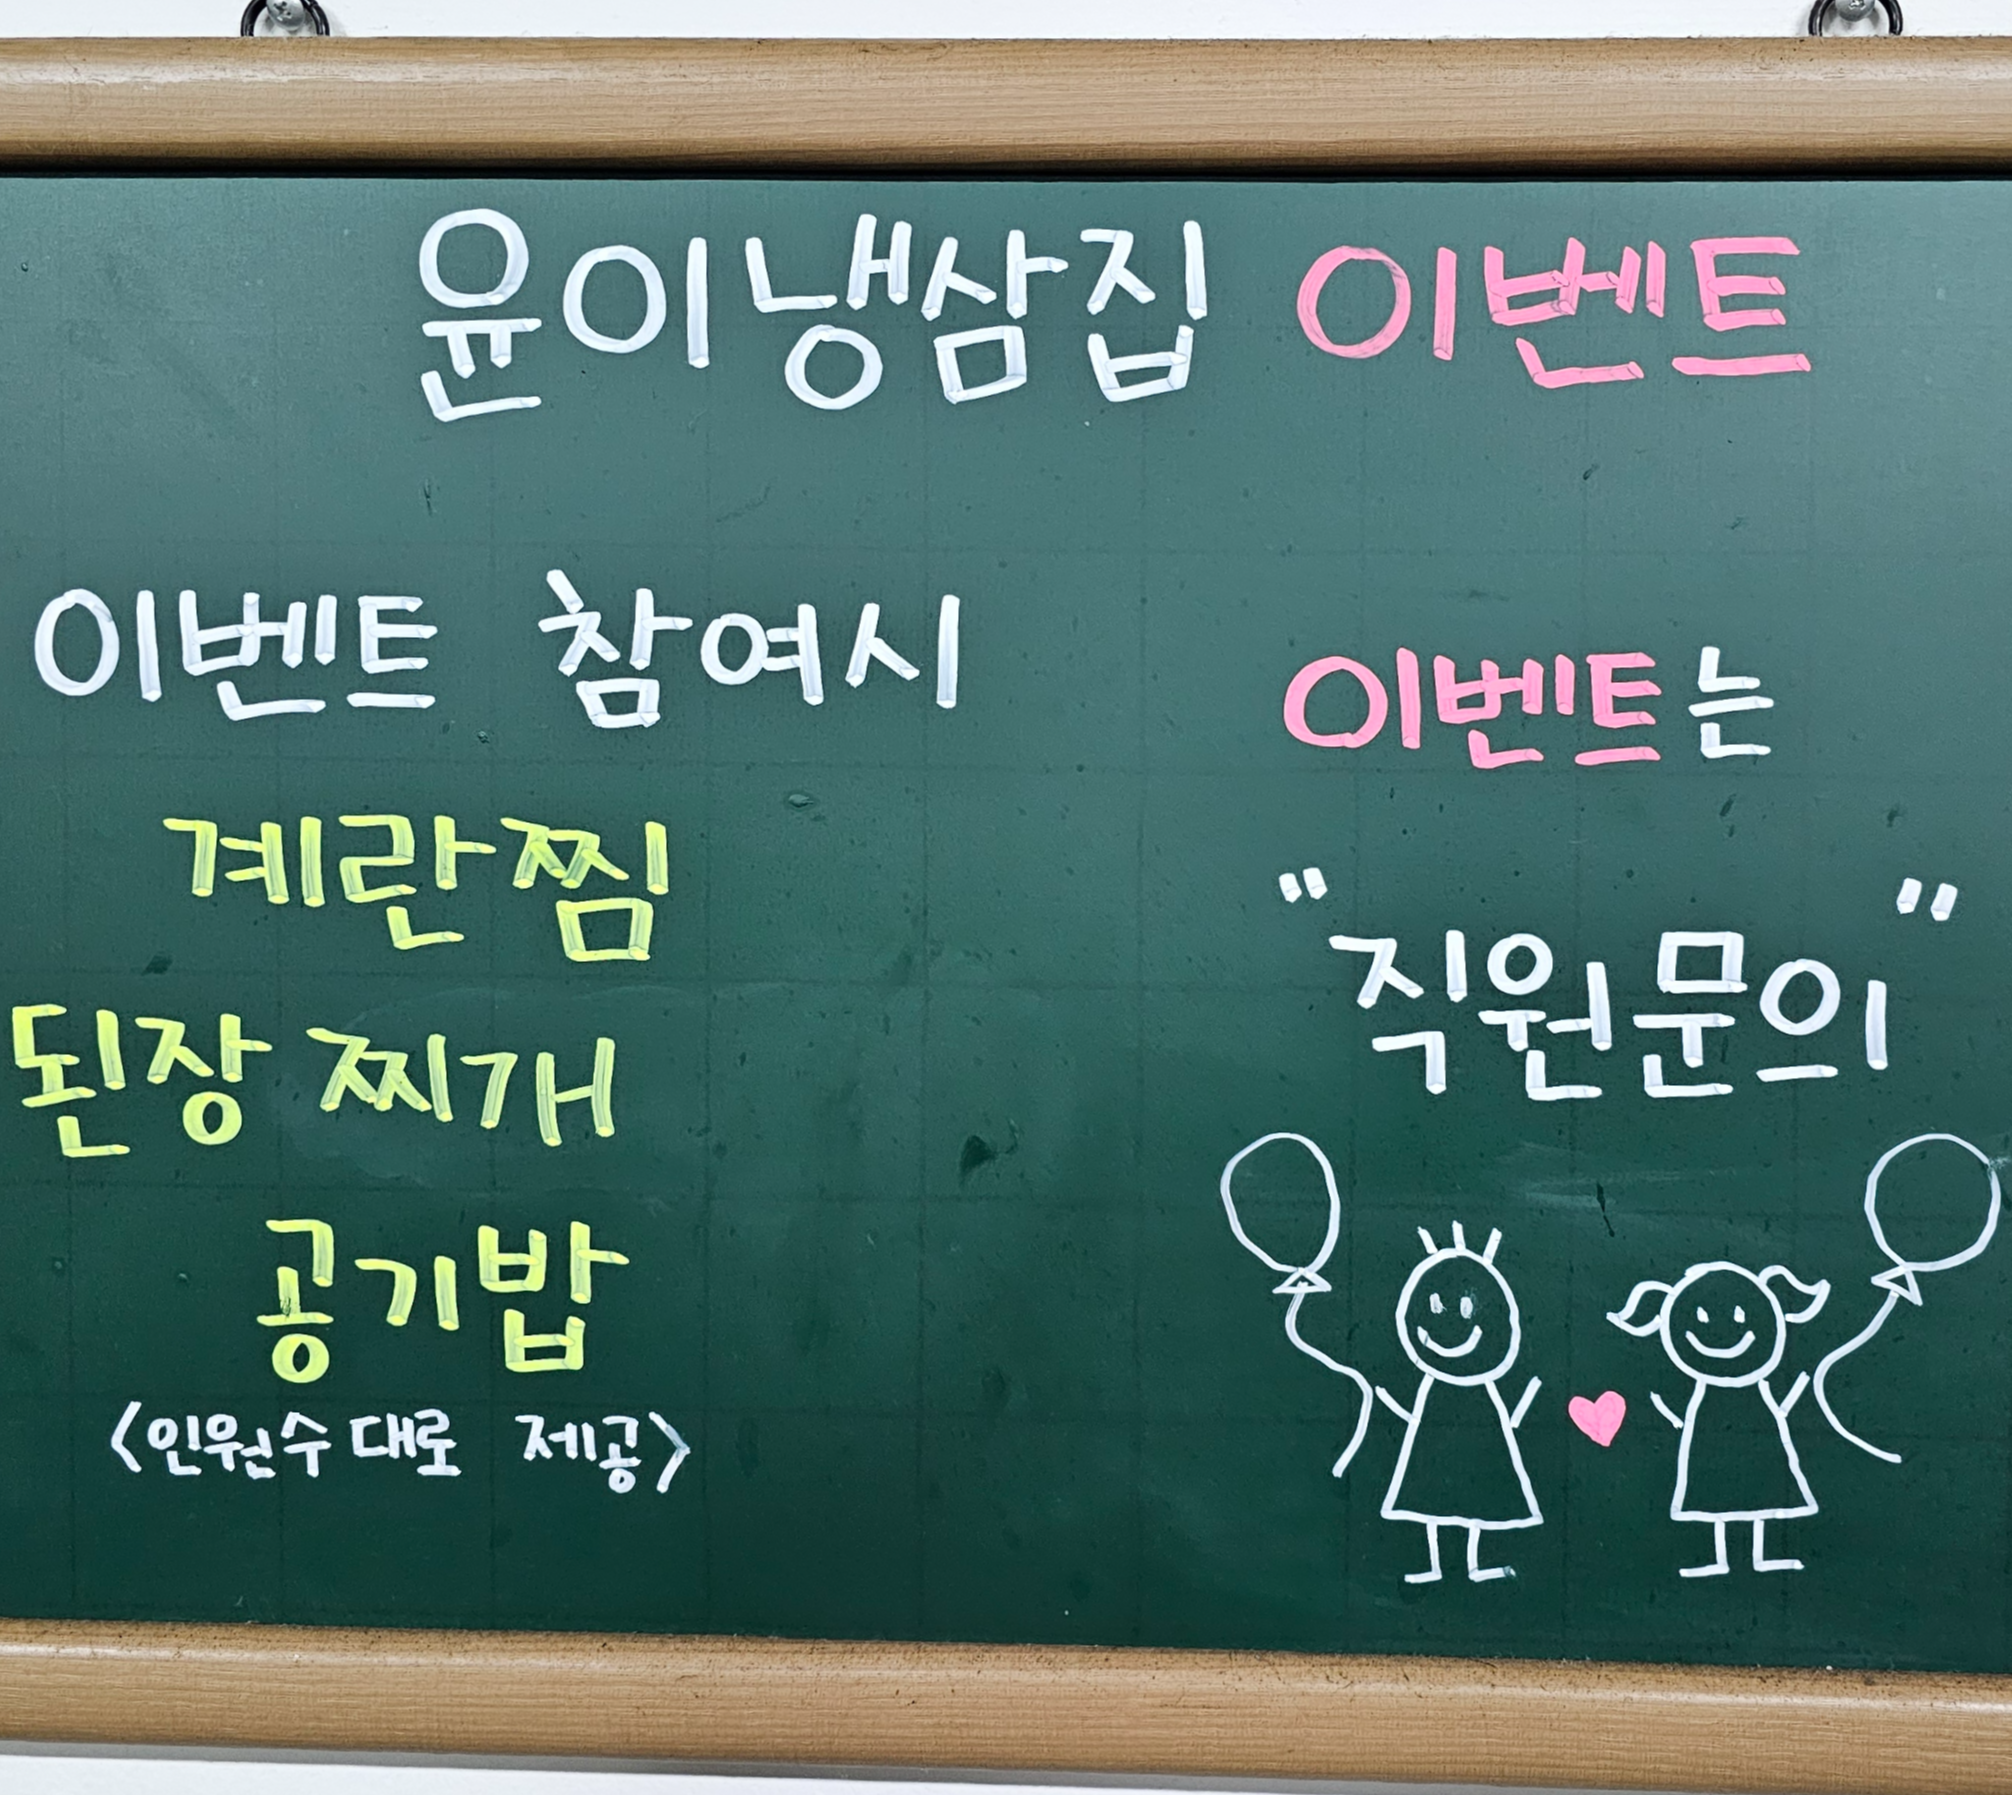 윤이냉삼집 이벤트
이벤트 참여시
계란찜
된장 찌개
공기밥
<인원수대로 제공>
이벤트는
"직원문의"